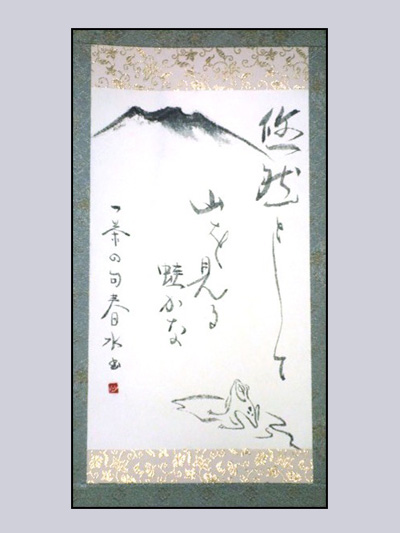 悠然として
山を見る
蛙かな
一茶の句春水書